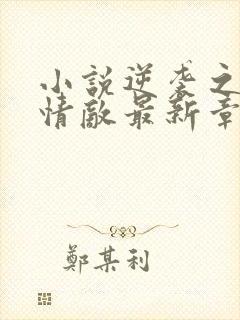 小說逆袭之
情敵最新章
鄭某利